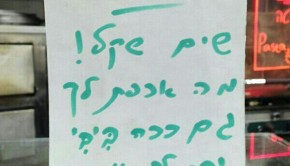 שים שקל!
מה אכפת לך
גם ככה ביבי